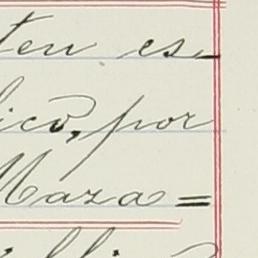 ten es-
lico, por
Maza=